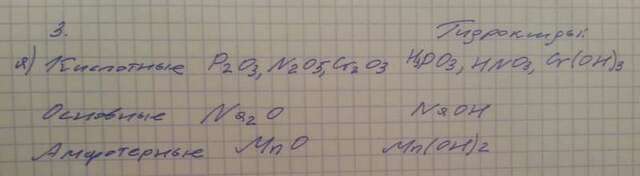 3. Гидроксиды:
а) Кислотные P₂O₃, N₂O₅, Cr₂O₃ H₃PO₃, HNO₃, Cr(OH)₃
Основные Na₂O NaOH
Амфотерные MnO Mn(OH)₂